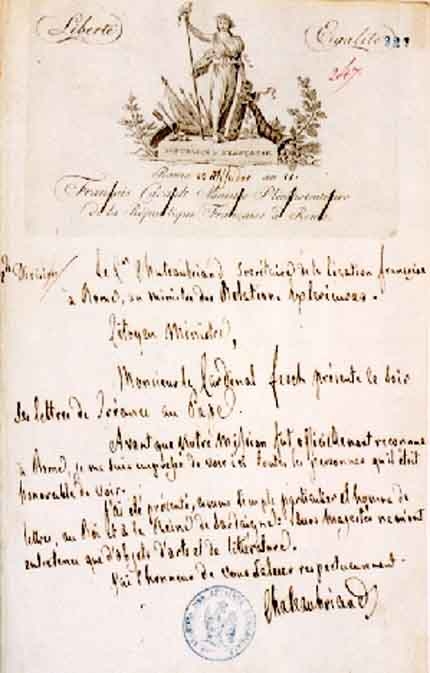 Liberté Egalité 221
247
REPUBLIQUE FRANÇAISE
Rome an 11
François Cacault Ministre Plénipotentiaire
de la République Française à Rome
Division
Le Cen Chateaubriand Secrétaire de la légation française
à Rome, au ministre des Relations Extérieures.
Citoyen Ministre,
Monsieur le Cardinal fesch présente ce soir
ses lettres de Créance au Pape.
Avant que notre mission fut officiellement reconnue
à Rome, je me suis empressé de voir ici toutes les personnes qu'il était
honorable de voir.
J'ai été présenté, comme simple particulier et homme de
lettres, au Roi et à la Reine de Sardaigne. Leurs Majestés ne m'ont
entretenu que d'objets d'arts et de littérature.
J'ai l'honneur de vous saluer respectueusement.
Chateaubriand